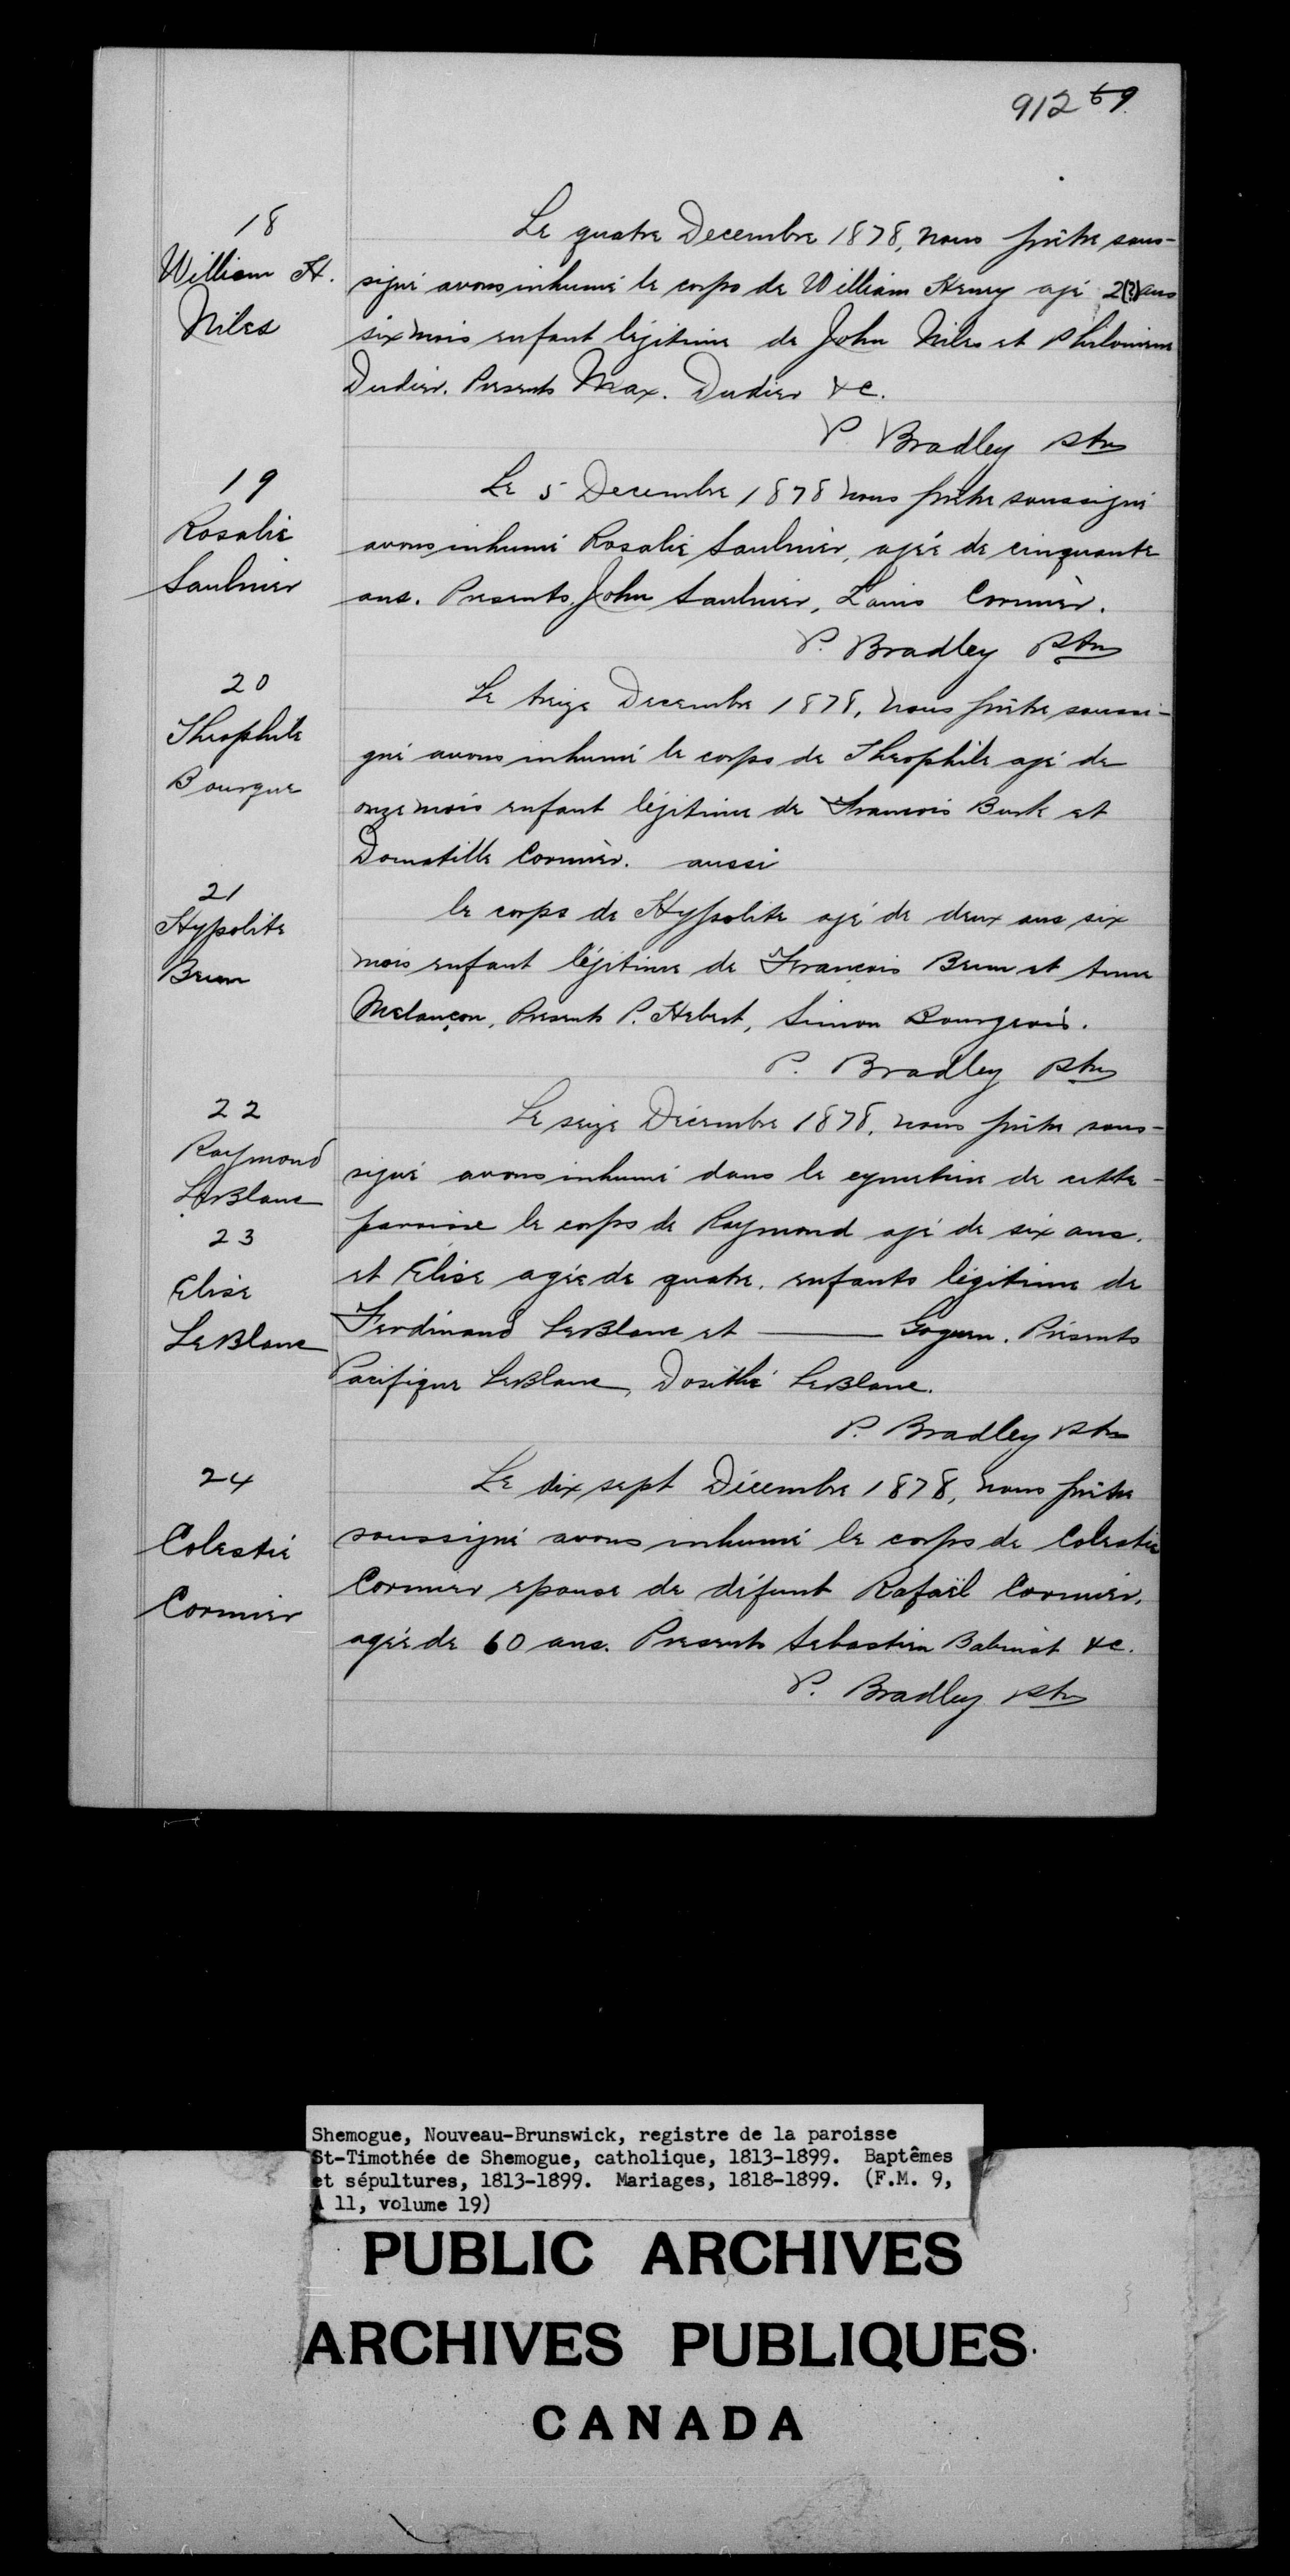 912 69
18
William H.
Niles
Le quatre Decembre 1878, nous prêtre sous-
signé avons inhumé le corps de William Henry agé 2(?) ans
six mois enfant légitime de John Niles et Philomène
Dudier. Presents Max. Dudier &c.
P. Bradley Ptre
19
Rosalie
Saulnier
Le 5 Decembre 1878 nous prêtre soussigné
avons inhumé Rosalie Saulnier, agée de cinquante
ans. Presents John Saulnier, Louis Cormier.
P. Bradley Ptre
20
Theophile
Bourque
Le treize Decembre 1878, nous prêtre soussi-
gné avons inhumé le corps de Theophile agé de
onze mois enfant légitime de Francois Burk et
Domatille Cormier. aussi
21
Hypolite
Brun
le corps de Hypolite agé de deux ans six
mois enfant légitime de François Brun et Anne
Melançon, Presents P. Hebert, Simon Bourgeois.
P. Bradley Ptre
22
Raymond
LeBlanc
23
Elise
LeBlanc
Le seize Décembre 1878, nous prêtre sous-
signé avons inhumé dans le cymetière de cette
paroisse le corps de Raymond agé de six ans.
et Elise agée de quatre. enfants légitime de
Ferdinand LeBlanc et ——— Goguen. Présents
Pacifique LeBlanc, Dosithé LeBlanc.
P. Bradley Ptre
24
Colestie
Cormier
Le dix sept Décembre 1878, nous prêtre
soussigné avons inhumé le corps de Colestie
Cormier epouse de défunt Rafaël Cormier,
agée de 60 ans. Presents Sebastien Babinot &c.
P. Bradley Ptre
Shemogue, Nouveau-Brunswick, registre de la paroisse
St-Timothée de Shemogue, catholique, 1813-1899. Baptêmes
et sépultures, 1813-1899. Mariages, 1818-1899. (F.M. 9,
A 11, volume 19)
PUBLIC ARCHIVES
ARCHIVES PUBLIQUES
CANADA